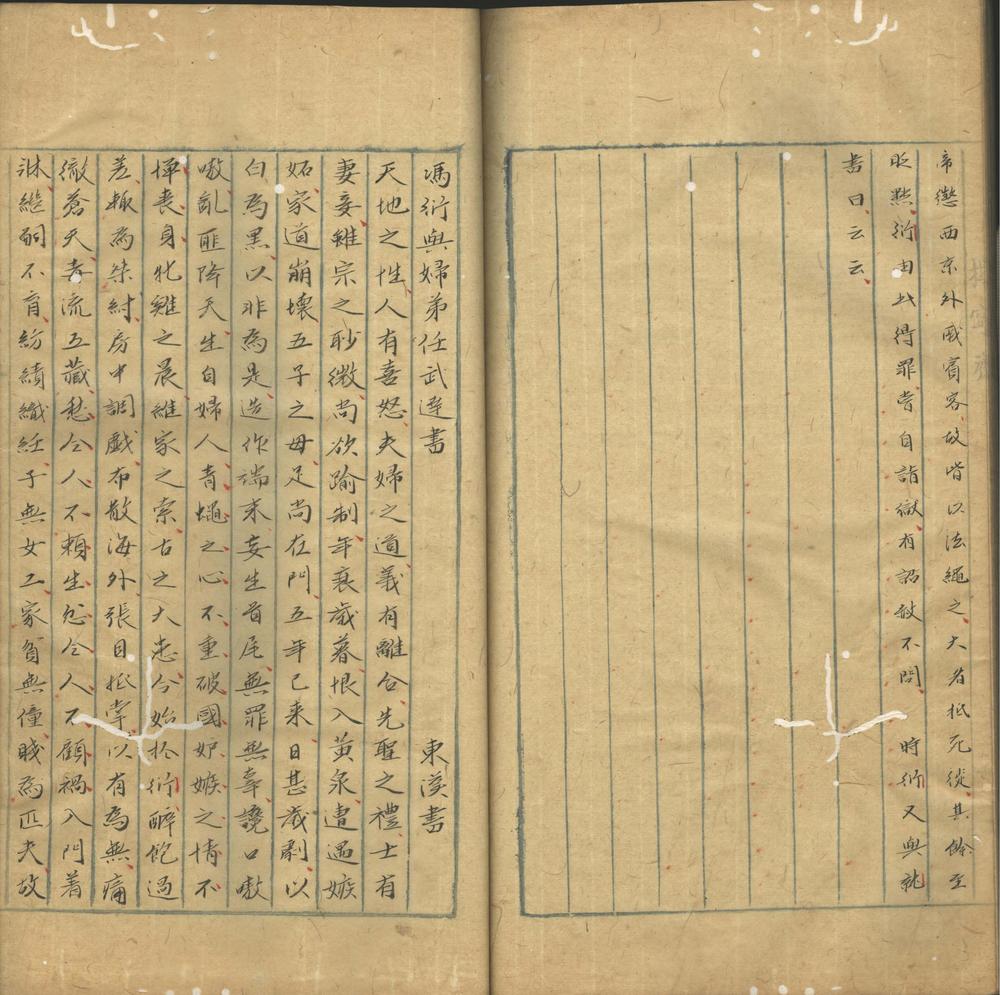 帝懲西京外戚賓客故皆以法繩之大者抵死從其餘至
貶黜衍由此得罪嘗自詣獄有詔赦不問 時衍又與就
書曰云云
馮衍與婦弟任武達書 東漢書
天地之性人有喜怒夫婦之道義有離合先聖之禮士有
妻妾雖宗之眇微尚欲踰制年衰歲暮恨入黃泉遭遇嫉
妬家道崩壞五子之母足尚在門五年已来日甚歲劇以
白為黑以非為是造作端末妄生首尾無罪無辜讒口嗷
嗷亂匪降天生自婦人青蠅之心不重破國妒嫉之情不
憚喪身牝雞之晨維家之索古之大患今始於衍醉飽過
差輒為桀紂房中調戲布散海外張目抵掌以有為無痛
徹蒼天毒流五藏愁令人不賴生忿令人不顧禍入門着
牀繼嗣不育紡績織紝子無女工家貧無僮賤為匹夫故